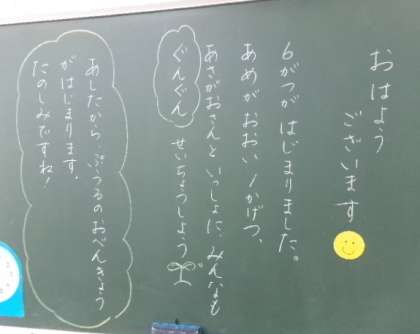 おはよう
ございます
6がつが はじまりました。
あめがおおい1かげつ、
あさがおさんと いっしょに、みんなも
ぐんぐん せいちょうしよう
あしたから、ぷうるのおべんきょう
がはじまります。
たのしみですね!